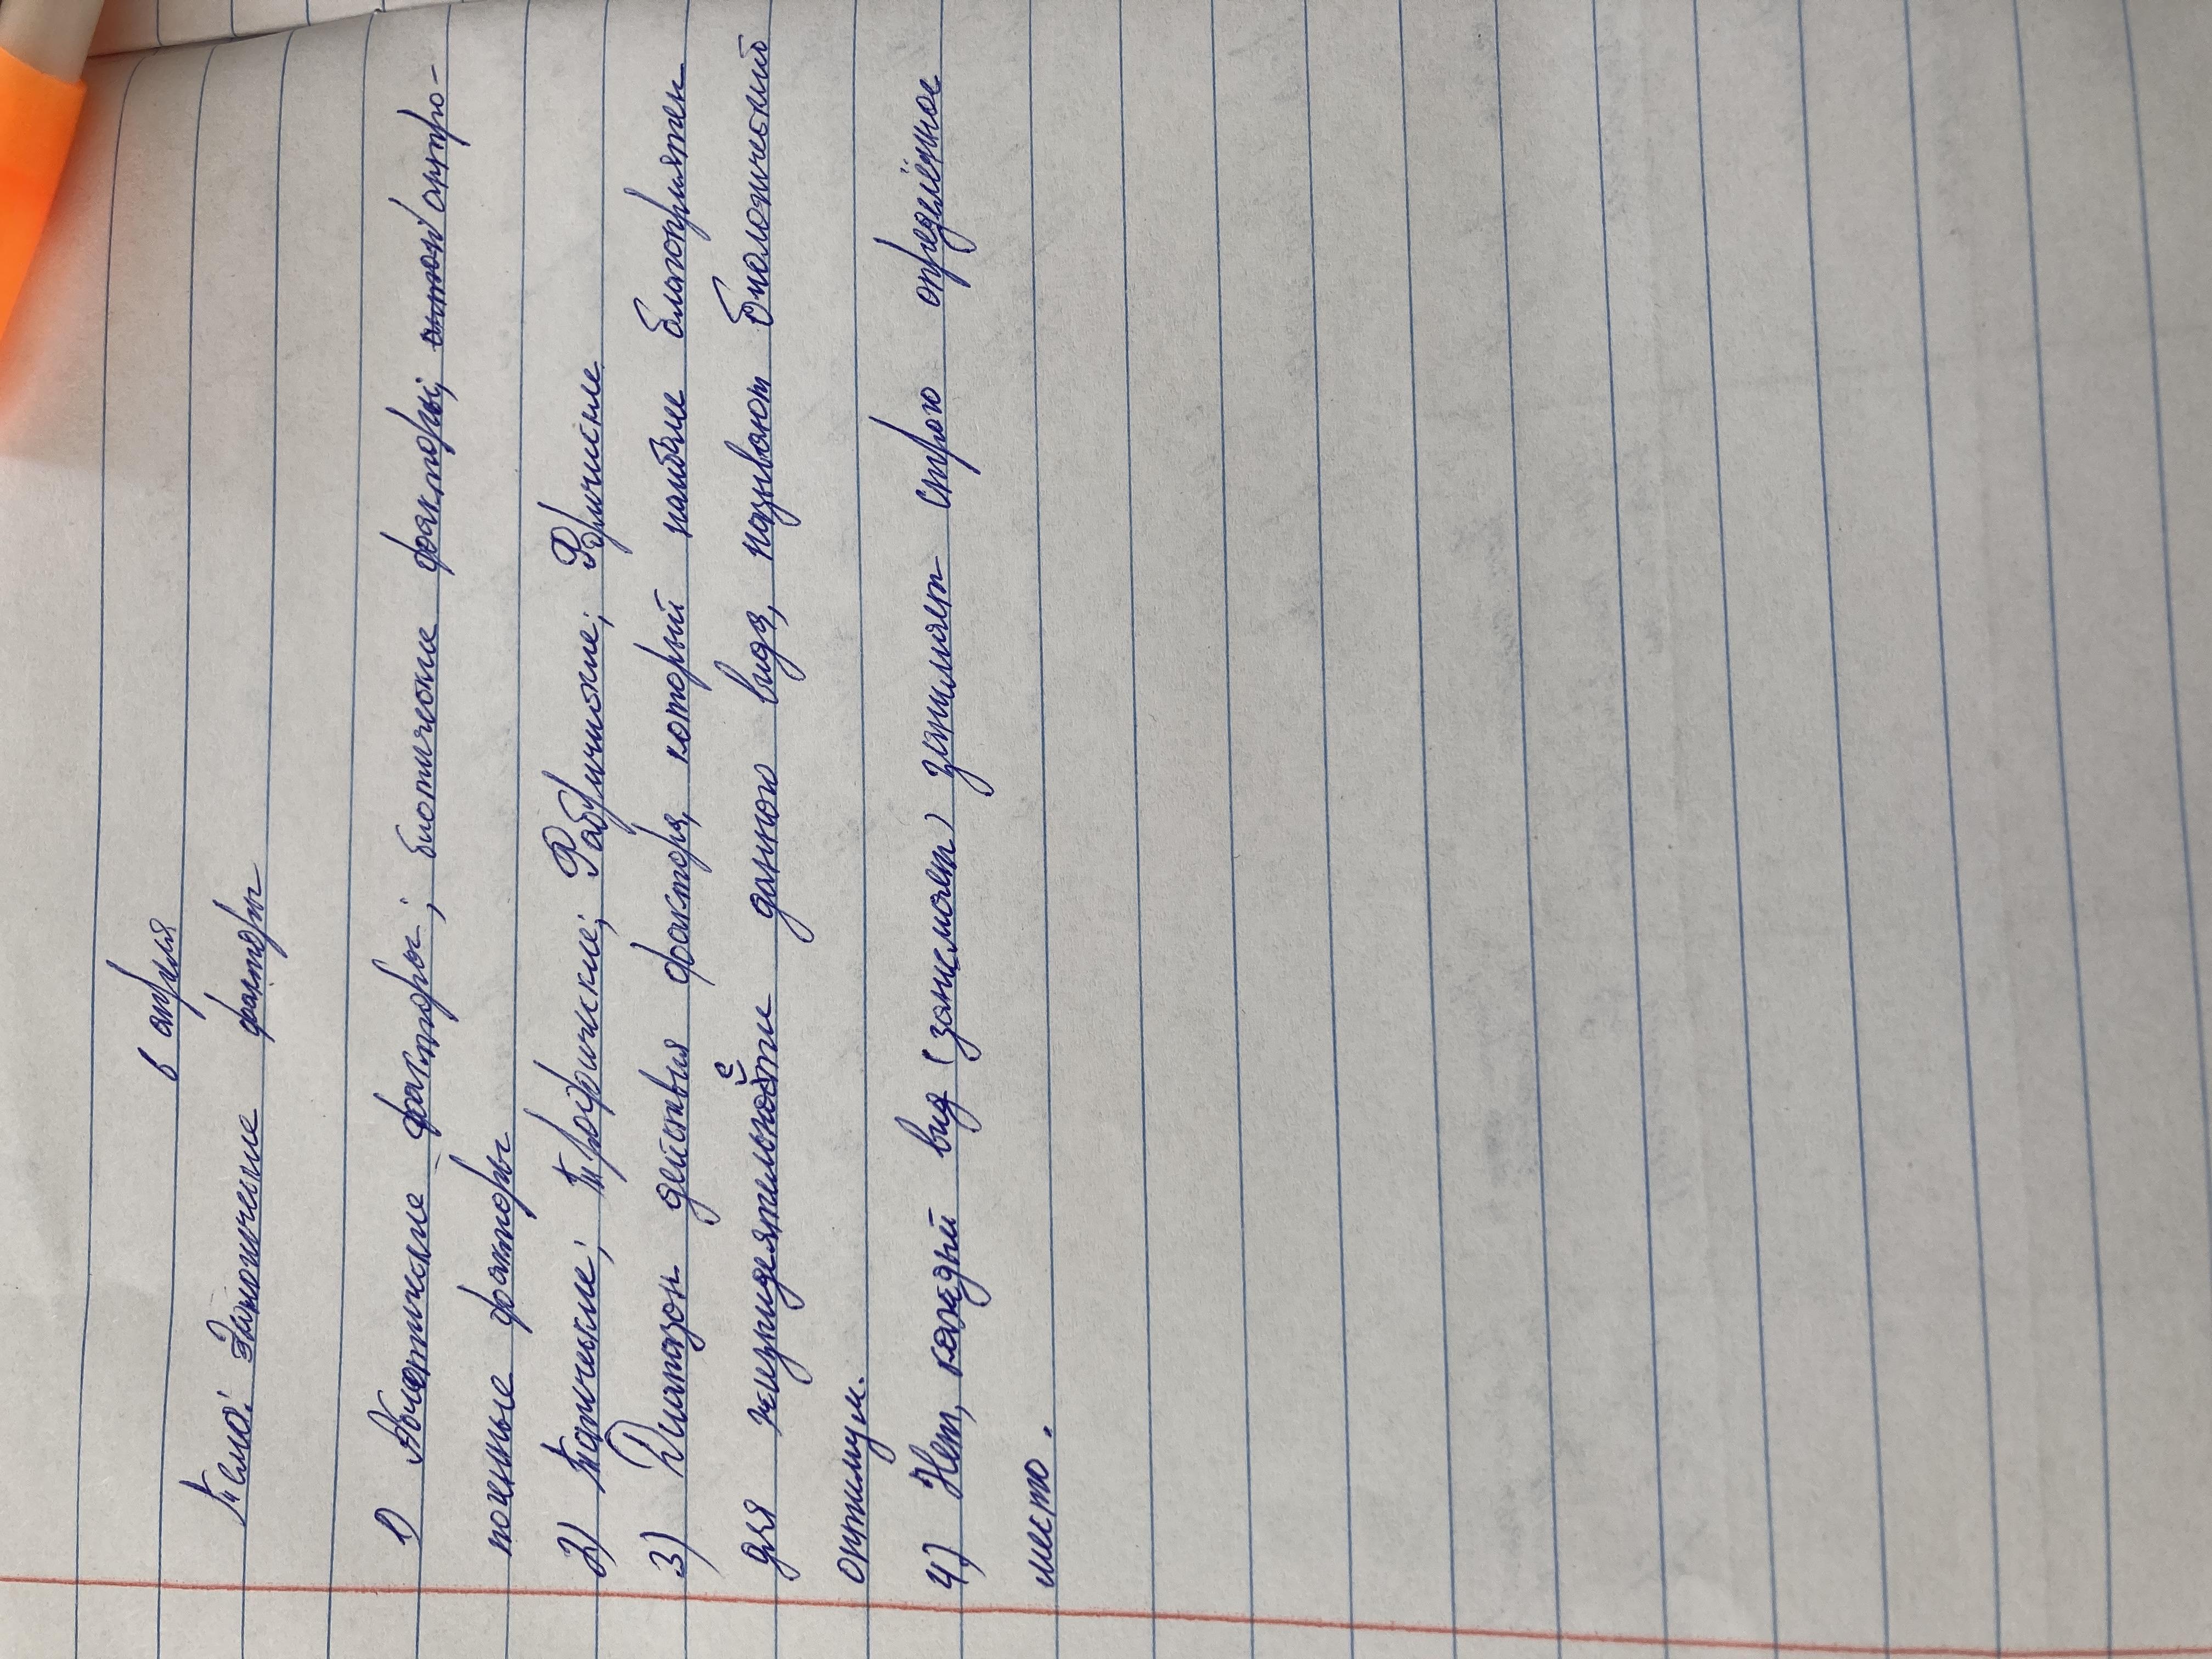 6 апреля
Тема: Экологические факторы
1) Абиотические факторы; биотические факторы; антропо-
генные факторы
2) Топические; трофические; Фабрические; Форические
3) Диапазон действия фактора, который наиболее благоприятен
для жизнидеятельности данного вида, называют биологический
оптимум.
4) Нет, каждый вид (занимает) занимает строго определённое
место.